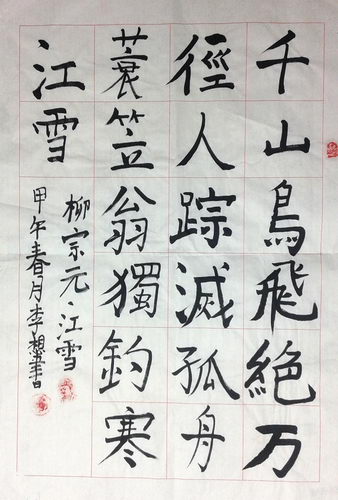 千山鳥飛絕万
徑人踪滅孤舟
蓑笠翁獨釣寒
江雪
柳宗元·江雪
甲午春月李書